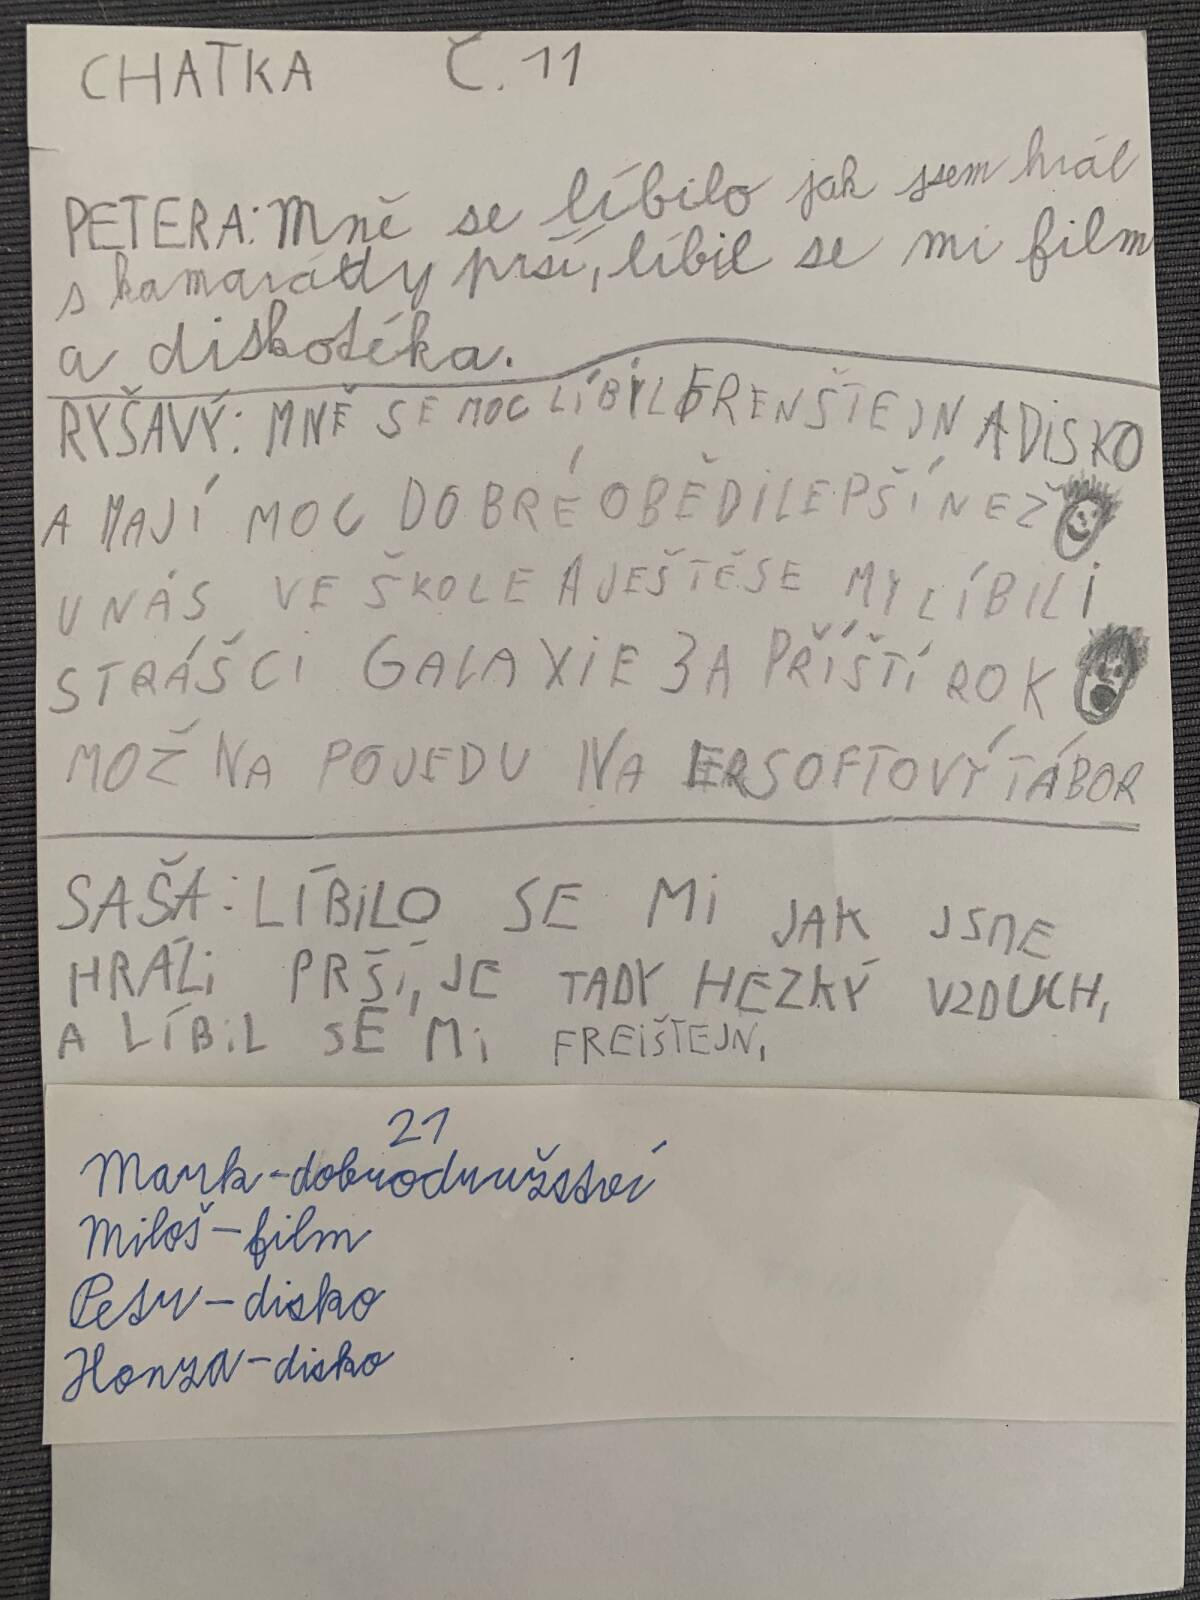 CHATKA Č. 11
PETERA: Mně se líbilo jak jsem hrál
s kamarády prší, líbil se mi film
a diskotéka.
RYŠAVÝ: MNĚ SE MOC LÍBIL FRENŠTEJN A DISKO
A MAJÍ MOC DOBRÉ OBĚDI LEPŠÍ NEŽ
U NÁS VE ŠKOLE A JEŠTĚ SE MY LÍBILI
STRÁŠCI GALAXIE ZA PŘÍŠTÍ ROK
MOŽNA POJEDU NA ERSOFTOVÝ TÁBOR
SAŠA: LÍBILO SE MI JAK JSME
HRÁLI PRŠÍ, JE TADY HEZKÝ VZDUCH,
A LÍBIL SE MI FREIŠTEJN,
21
Mark-dobrodružství
Miloš-film
Petr-disko
Honza-disko